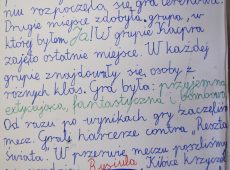 niu rozpoczęła się gra terenowa.
Drugie miejsce zdobyła grupa, w
której byłam Ja! W grupie Kacpra
zajęło ostatnie miejsce. W każdej
grupie znajdowały się osoby z
roznych klas. Gra była: przyjemna
fantastyczna i bombowa.
Od razu po wynikach gry zaczęliśmy
mecz. Grali harcerze contra "Reszta
Świata". W przerwie meczu poszliśmy
Kibice krzyczeli